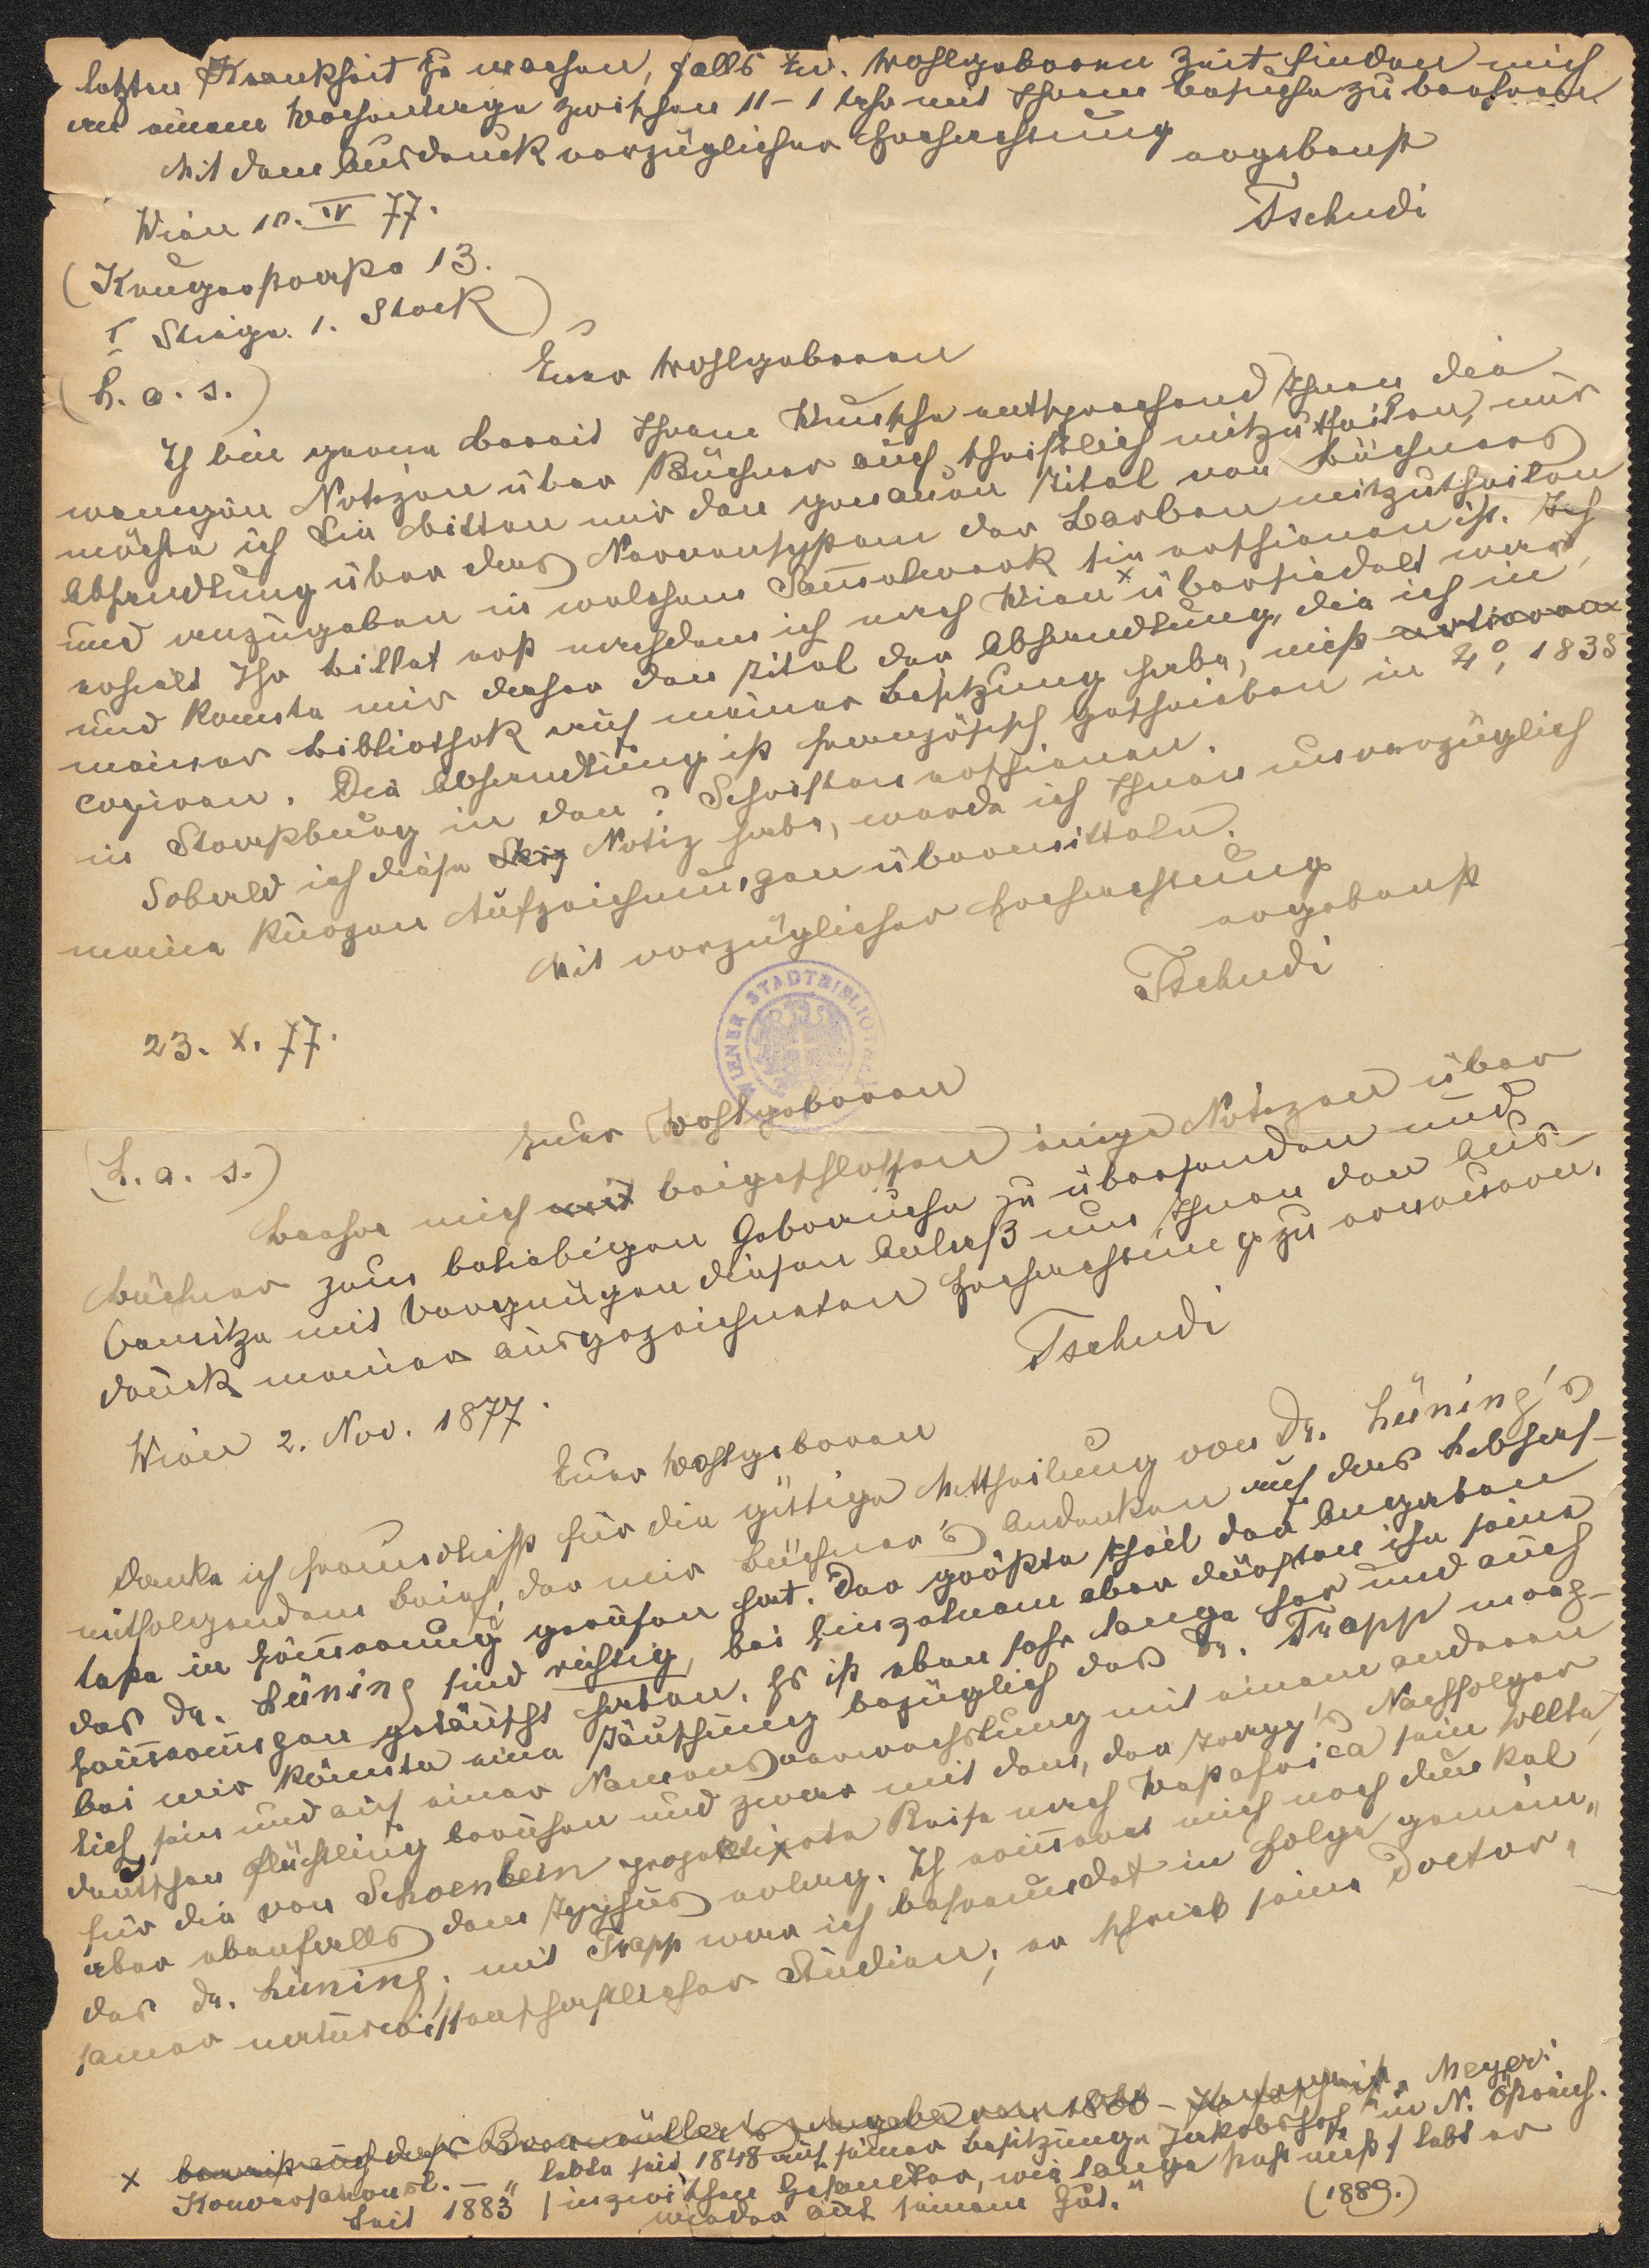 letzten Krankheit zu machen, falls Ew. Wohlgeboren Zeit finden mich
an einem Wochentage zwischen 11-1 Uhr mit Ihrem Besuche zu beehren.
Mit dem Ausdruck vorzüglicher Hochachtung
ergebenst
Tschudi
Wien 10. IV 77.
(Krugerstrasse 13.
I Stiege. 1. Stock)
(L. a. s.)
Euer Wohlgeboren
Ich bin gerne bereit Ihrem Wunsche entsprechend Ihnen die
wenigen Notizen über Büchner auch schriftlich mitzutheilen, nur
möchte ich Sie bitten mir den genauen Titel von Büchners
Abhandlung über das Nervensystem der Barben mitzutheilen
und anzugeben in welchem Sammelwerk sie erschienen ist. Ich
erhielt Ihr Billet erst nachdem ich nach Wien x übersiedelt war,
und konnte mir daher den Titel der Abhandlung, die ich in
meiner Bibliothek auf meiner Besitzung habe, nicht notieren
copieren. Die Abhandlung ist französisch geschrieben in 4°, 1838
in Strassburg in den ? Schriften erschienen.
Sobald ich diese Skiz Notiz habe, werde ich Ihnen unverzüglich
meine kurzen Aufzeichnungen übermitteln.
Mit vorzüglicher Hochachtung
ergebenst
Tschudi
23. X. 77.
WIENER STADTBIBLIOT
Euer Wohlgeboren
(L. a. s.)
beehre mich mit beigeschlossen einige Notizen über
Büchner zum beliebigen Gebrauche zu übersenden und
benütze mit Vergnügen diesen Anlaß um Ihnen den Aus-
druck meiner ausgezeichneten Hochachtung zu erneuern.
Tschudi
Wien 2. Nov. 1877.
Euer Wohlgeboren
danke ich freundlichst für die gütige Mittheilung von Dr. Lüning's
mitfolgendem Brief, der mir Büchner's Andenken auf das Lebhaf-
teste in Erinnerung gerufen hat. Der größte Theil der Angaben
des Dr. Lüning sind richtig, bei Einzelnem aber dürften ihn seine
Erinnerungen getäuscht haben. Es ist eben sehr lange her und auch
bei mir könnte eine Täuschung bezüglich des Dr. Trapp mög-
lich sein und auf einer Namensverwechslung mit einem anderen
deutschen Flüchtling beruhen und zwar mit dem, der Fergg's Nachfolger
für die von Schoenbein projektirte Reise nach Westafrica sein sollte,
aber ebenfalls dem Typhus erlag. Ich erinnere mich noch dunkel
des Dr. Lüning; mit Trapp war ich befreundet in Folge gemein-
samer naturwissenschaftlicher Studien; er schrieb seine Doctor-
x beweist auch das Braumüller's Ausgabe von 1866 – Meyer's
Konversationsl. – "lebte seit 1848 auf seiner Besitzung Jakobshof" in N. Österreich.
Seit 1883 / inzwischen Gesandter, wie lange steht nicht / lebt er
wieder auf seinem Gut."
(1889.)